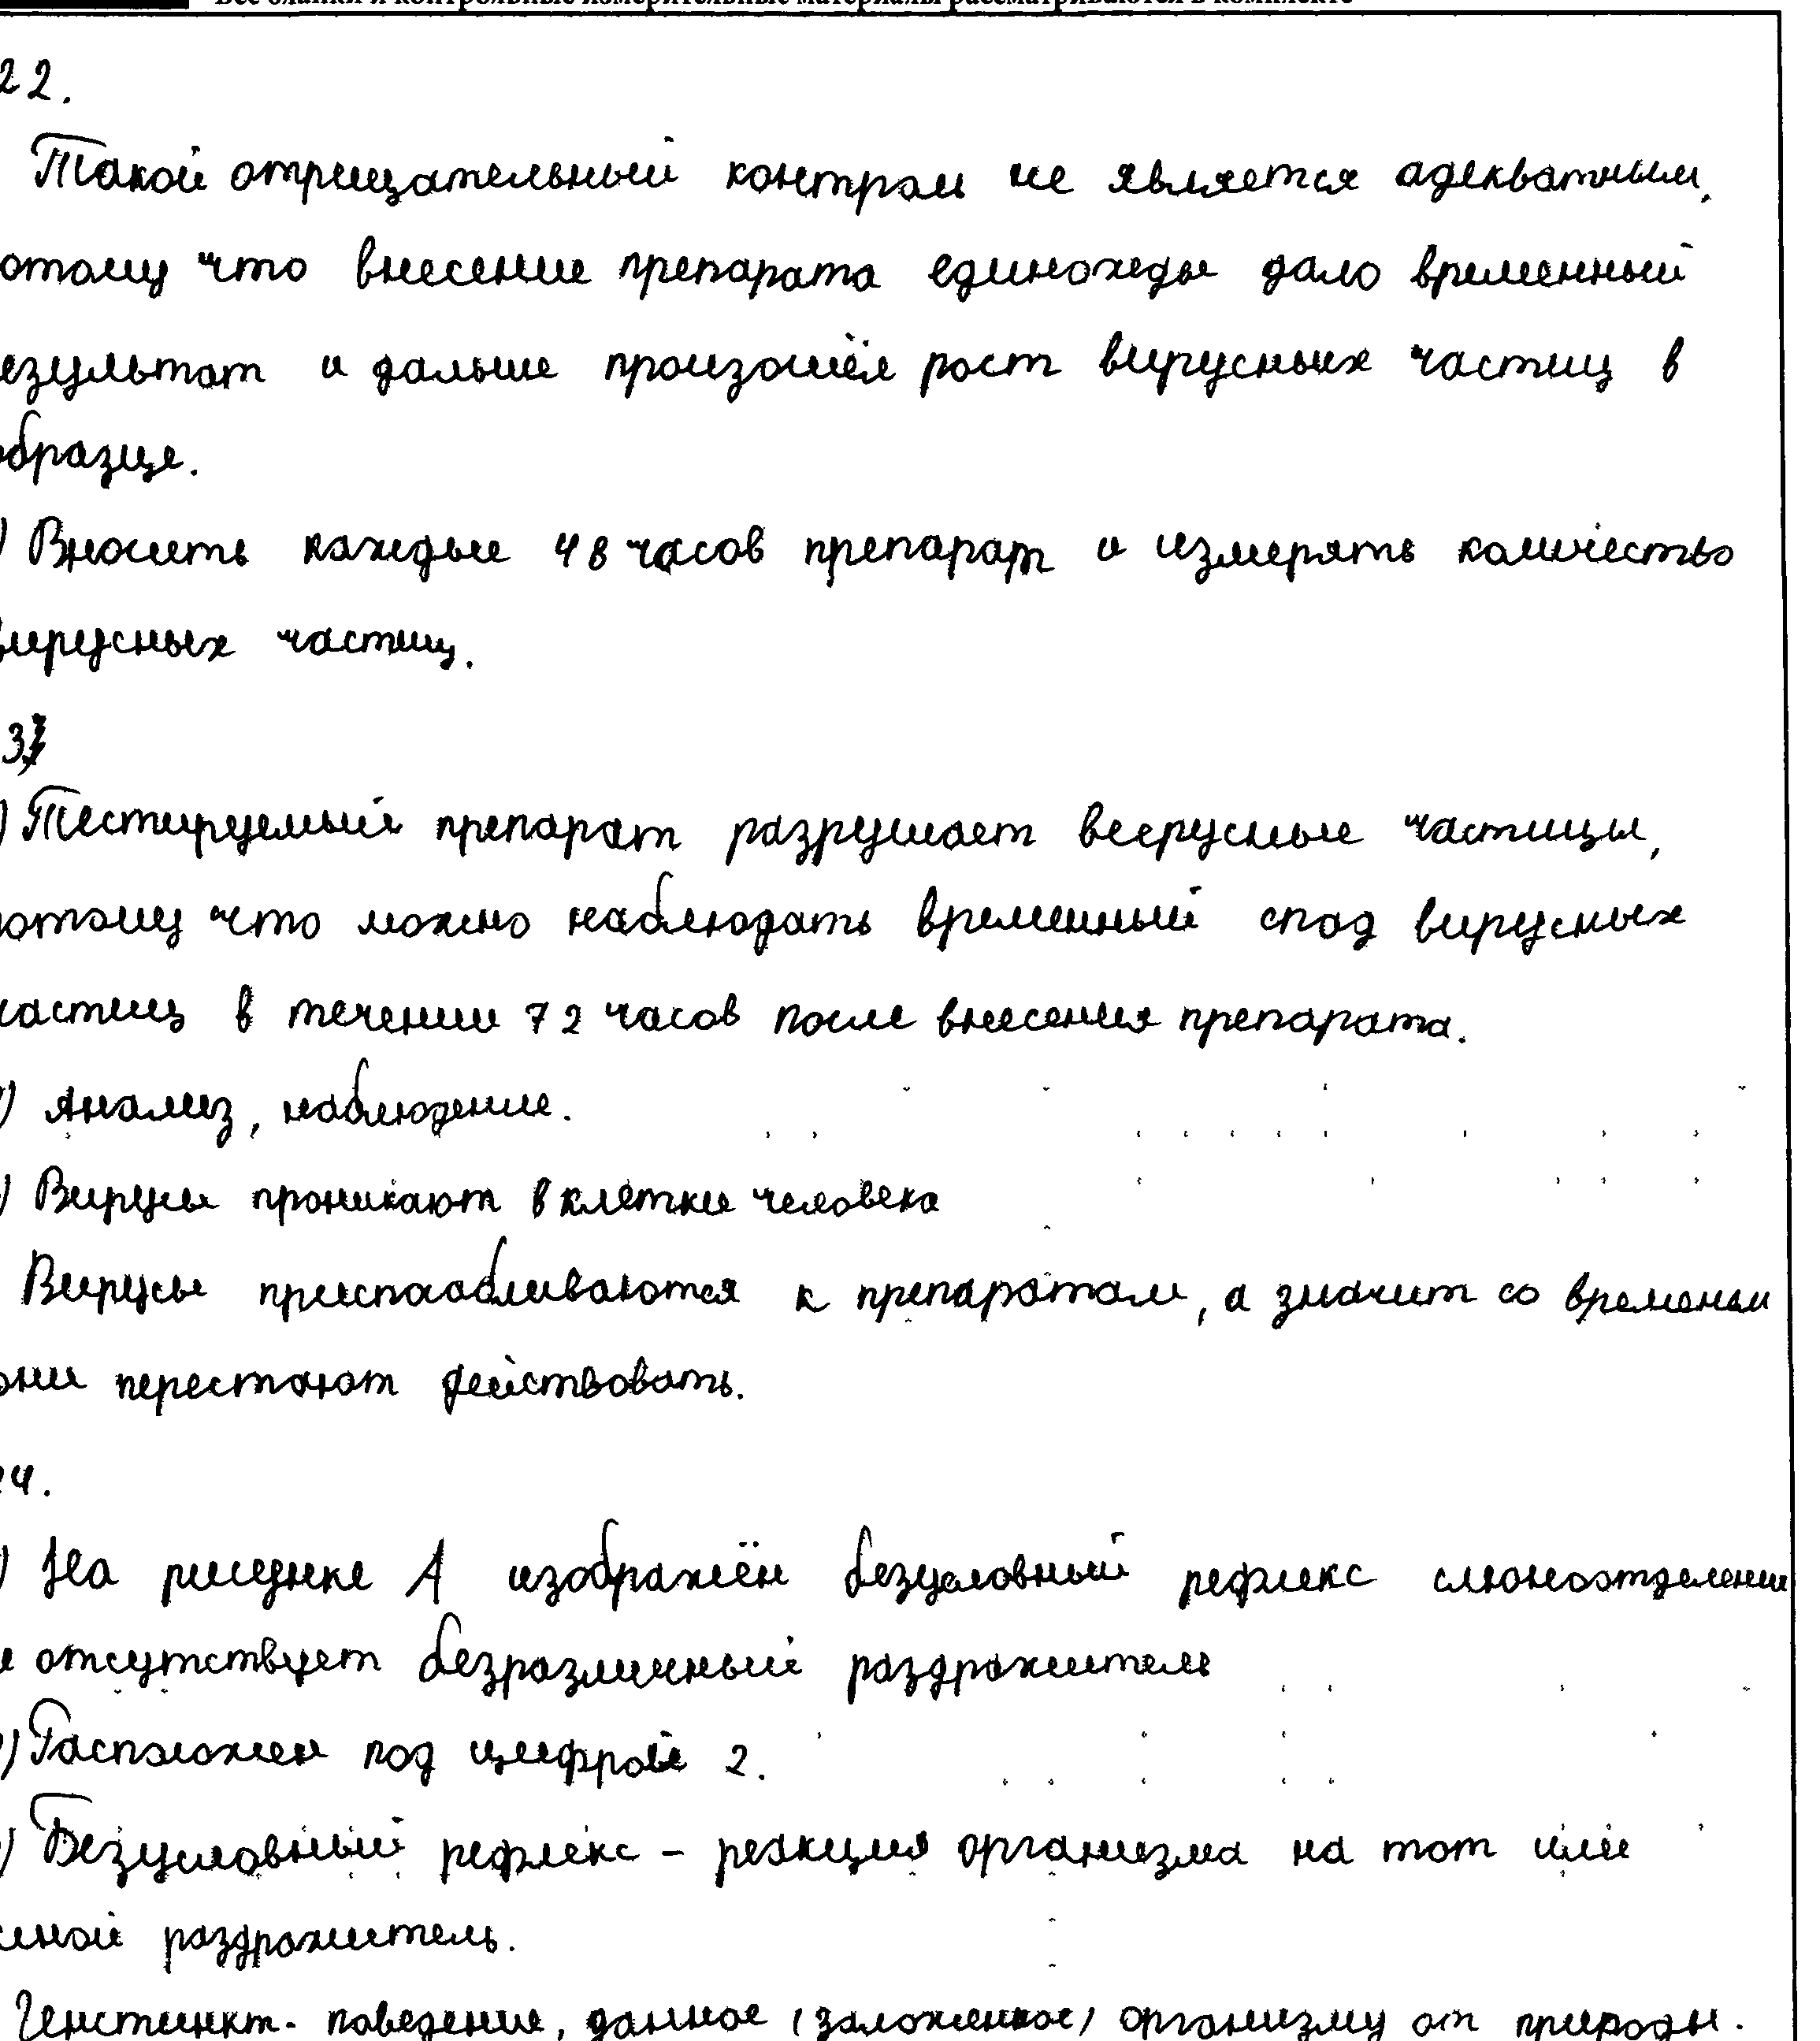 Все бланки и контрольные измерительные материалы рассматриваются в комплекте
22.
Такой отрицательный контроль не является адекватным,
отому что внесение препарата единожды дало временный
езультат и дальше произошёл рост вирусных частиц в
образце.
) Вносить каждые 48 часов препарат и измерять количество
вирусных частиц.
3)
) Тестируемый препарат разрушает вирусные частицы,
потому что можно наблюдать временный спад вирусных
частиц в течении 72 часов после внесения препарата.
) Анализ, наблюдение.
) Вирусы проникают в клетки человека
Вирусы приспосабливаются к препаратам, а значит со временем
они перестают действовать.
24.
) На рисунке А изображён безусловный рефлекс слюноотделения
и отсутствует безразличный раздражитель
) Расположен под цифрой 2.
) Безусловный рефлекс – реакция организма на тот или
иной раздражитель.
Инстинкт - поведение, данное (заложенное) организму от природы.